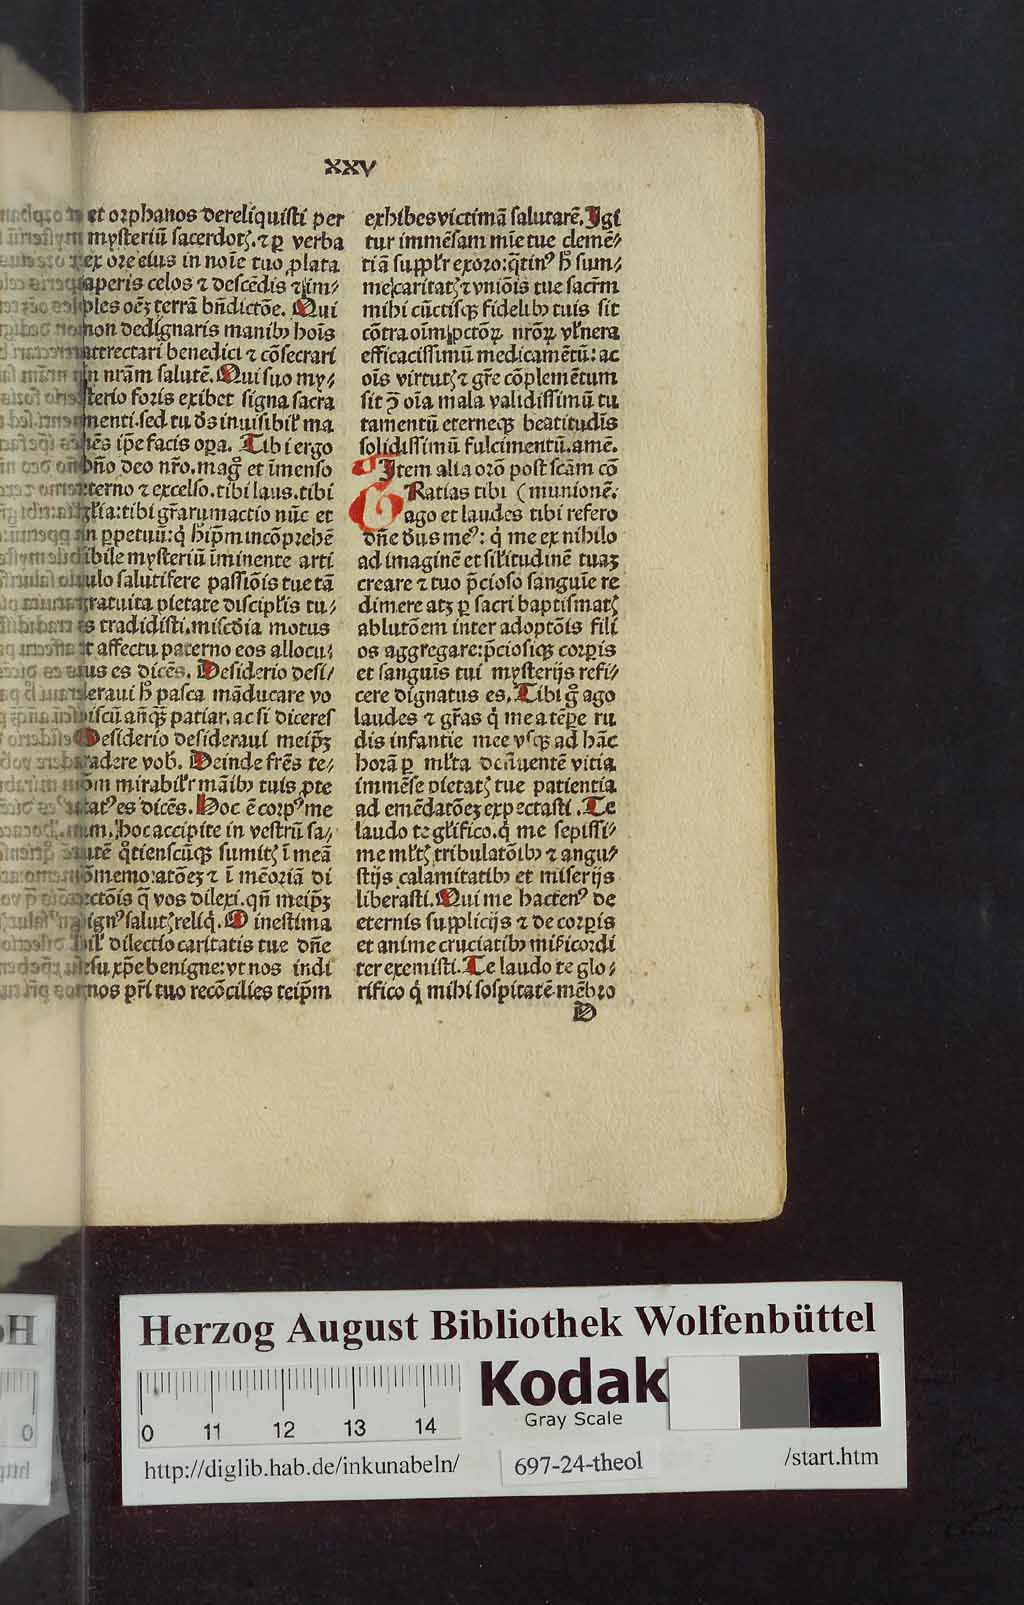 XXV
et orphanos dereliquisti per
mysteriū sacerdotꝫ. ⁊ ꝑ verba
ex ore eius in noīe tuo ꝓlata
aperis celos ⁊ descēdis ⁊ im⸗
ples oēꝫ terrā bn̄dictōe. Qui
non dedignaris manibꝰ hoīs
attrectari benedici ⁊ cōsecrari
in nrām salutē. Qui suo my⸗
sterio foris exibet signa sacra
menti. sed tu ds̄ inuisibil̓r ma
nēs ip̄e facis oꝑa. Tibi ergo
bn̄o deo nr̄o. mag̊ et īmenso
eterno ⁊ excelso. tibi laus. tibi
gl̓ia: tibi gr̄arum actio nūc et
in ꝑpetuū: q̇ hip̄m incōprehē
ibile mysteriū īminente arti
culo salutifere passiōis tue tā
gratuita pietate discipl̓is tu⸗
is tradidisti. misc̄dia motus
et affectu paterno eos allocu⸗
tus es dicēs. Desiderio desi⸗
deraui h̄ pasca māducare vo
biscū an̄qꝫ patiar. ac si diceres
Desiderio desideraui meip̄ꝫ
tradere vob̓. Deinde frēs te⸗
mirabil̓r māibꝰ tuis ꝓte
es dicēs. Hoc ē corpꝰ me
um. hoc accipite in vestrū sa⸗
lutē q̊tienscūqꝫ sumitꝫ ī meā
cōmemoratōeꝫ ⁊ ī mēoriā di
lectōis q̄ vos dilexi. qn̄ meip̄ꝫ
pignꝰ salutꝫ reliq̇. O inestima
bil̓ dilectio caritatis tue dn̄e
iesu xp̄e benigne: vt nos indi
gnos pr̄i tuo recōcilies teip̄m
exhibes victimā salutarē. Igi
tur immēsam mīe tue cleme⸗
tiā suppl̓r exoro: q̄tinꝰ h̄ sum⸗
me caritatꝫ ⁊ vniōis tue sacr̄m
mihi cūctisqꝫ fidelibꝰ tuis sit
cōtra oīm pctōꝝ nrōꝝ vl̓nera
efficacissimū medicamētū: ac
oīs virtutꝫ ⁊ gr̄e cōplemētum
sit ꝯ oīa mala validissimū tu
tamentū eterneqꝫ beatitudīs
solidissimū fulcimentū. amē.
Item alia orō post scām cō
GRatias tibi (munionē.
ago et laudes tibi refero
dn̄e ds̄ us meꝰ: q̇ me ex nihilo
ad imaginē et sil̓itudinē tuaꝫ
creare ⁊ tuo p̄cioso sanguīe re
dimere atꝫ ꝑ sacri baptismatꝫ
ablutōem inter adoptōis fili
os aggregare: p̄ciosiqꝫ corꝑis
et sanguīs tui mysterijs refi⸗
cere dignatus es. Tibi g̊ ago
laudes ⁊ gr̄as q̇ me a tēpe ru
dis infantie mee vsqꝫ ad hāc
horā ꝑ ml̓ta vitia
immēse pietatꝫ tue patientia
ad emēdatōeꝫ expectasti. Te
laudo te gl̓ifico. q̇ me sepissi⸗
me ml̓tꝫ tribulatōibꝰ ⁊ angu⸗
stijs calamitatibꝰ et miserijs
liberasti. Qui me hactenꝰ de
eternis supplicijs ⁊ de corꝑis
et anime cruciatibꝰ mis̓icordi
ter exemisti. Te laudo te glo⸗
rifico q̇ mihi sospitatē mēbro
D
Herzog August Bibliothek Wolfenbüttel
0 11 12 13 14
Kodak
Gray Scale
http://diglib.hab.de/inkunabeln/
697-24-theol
/start.htm